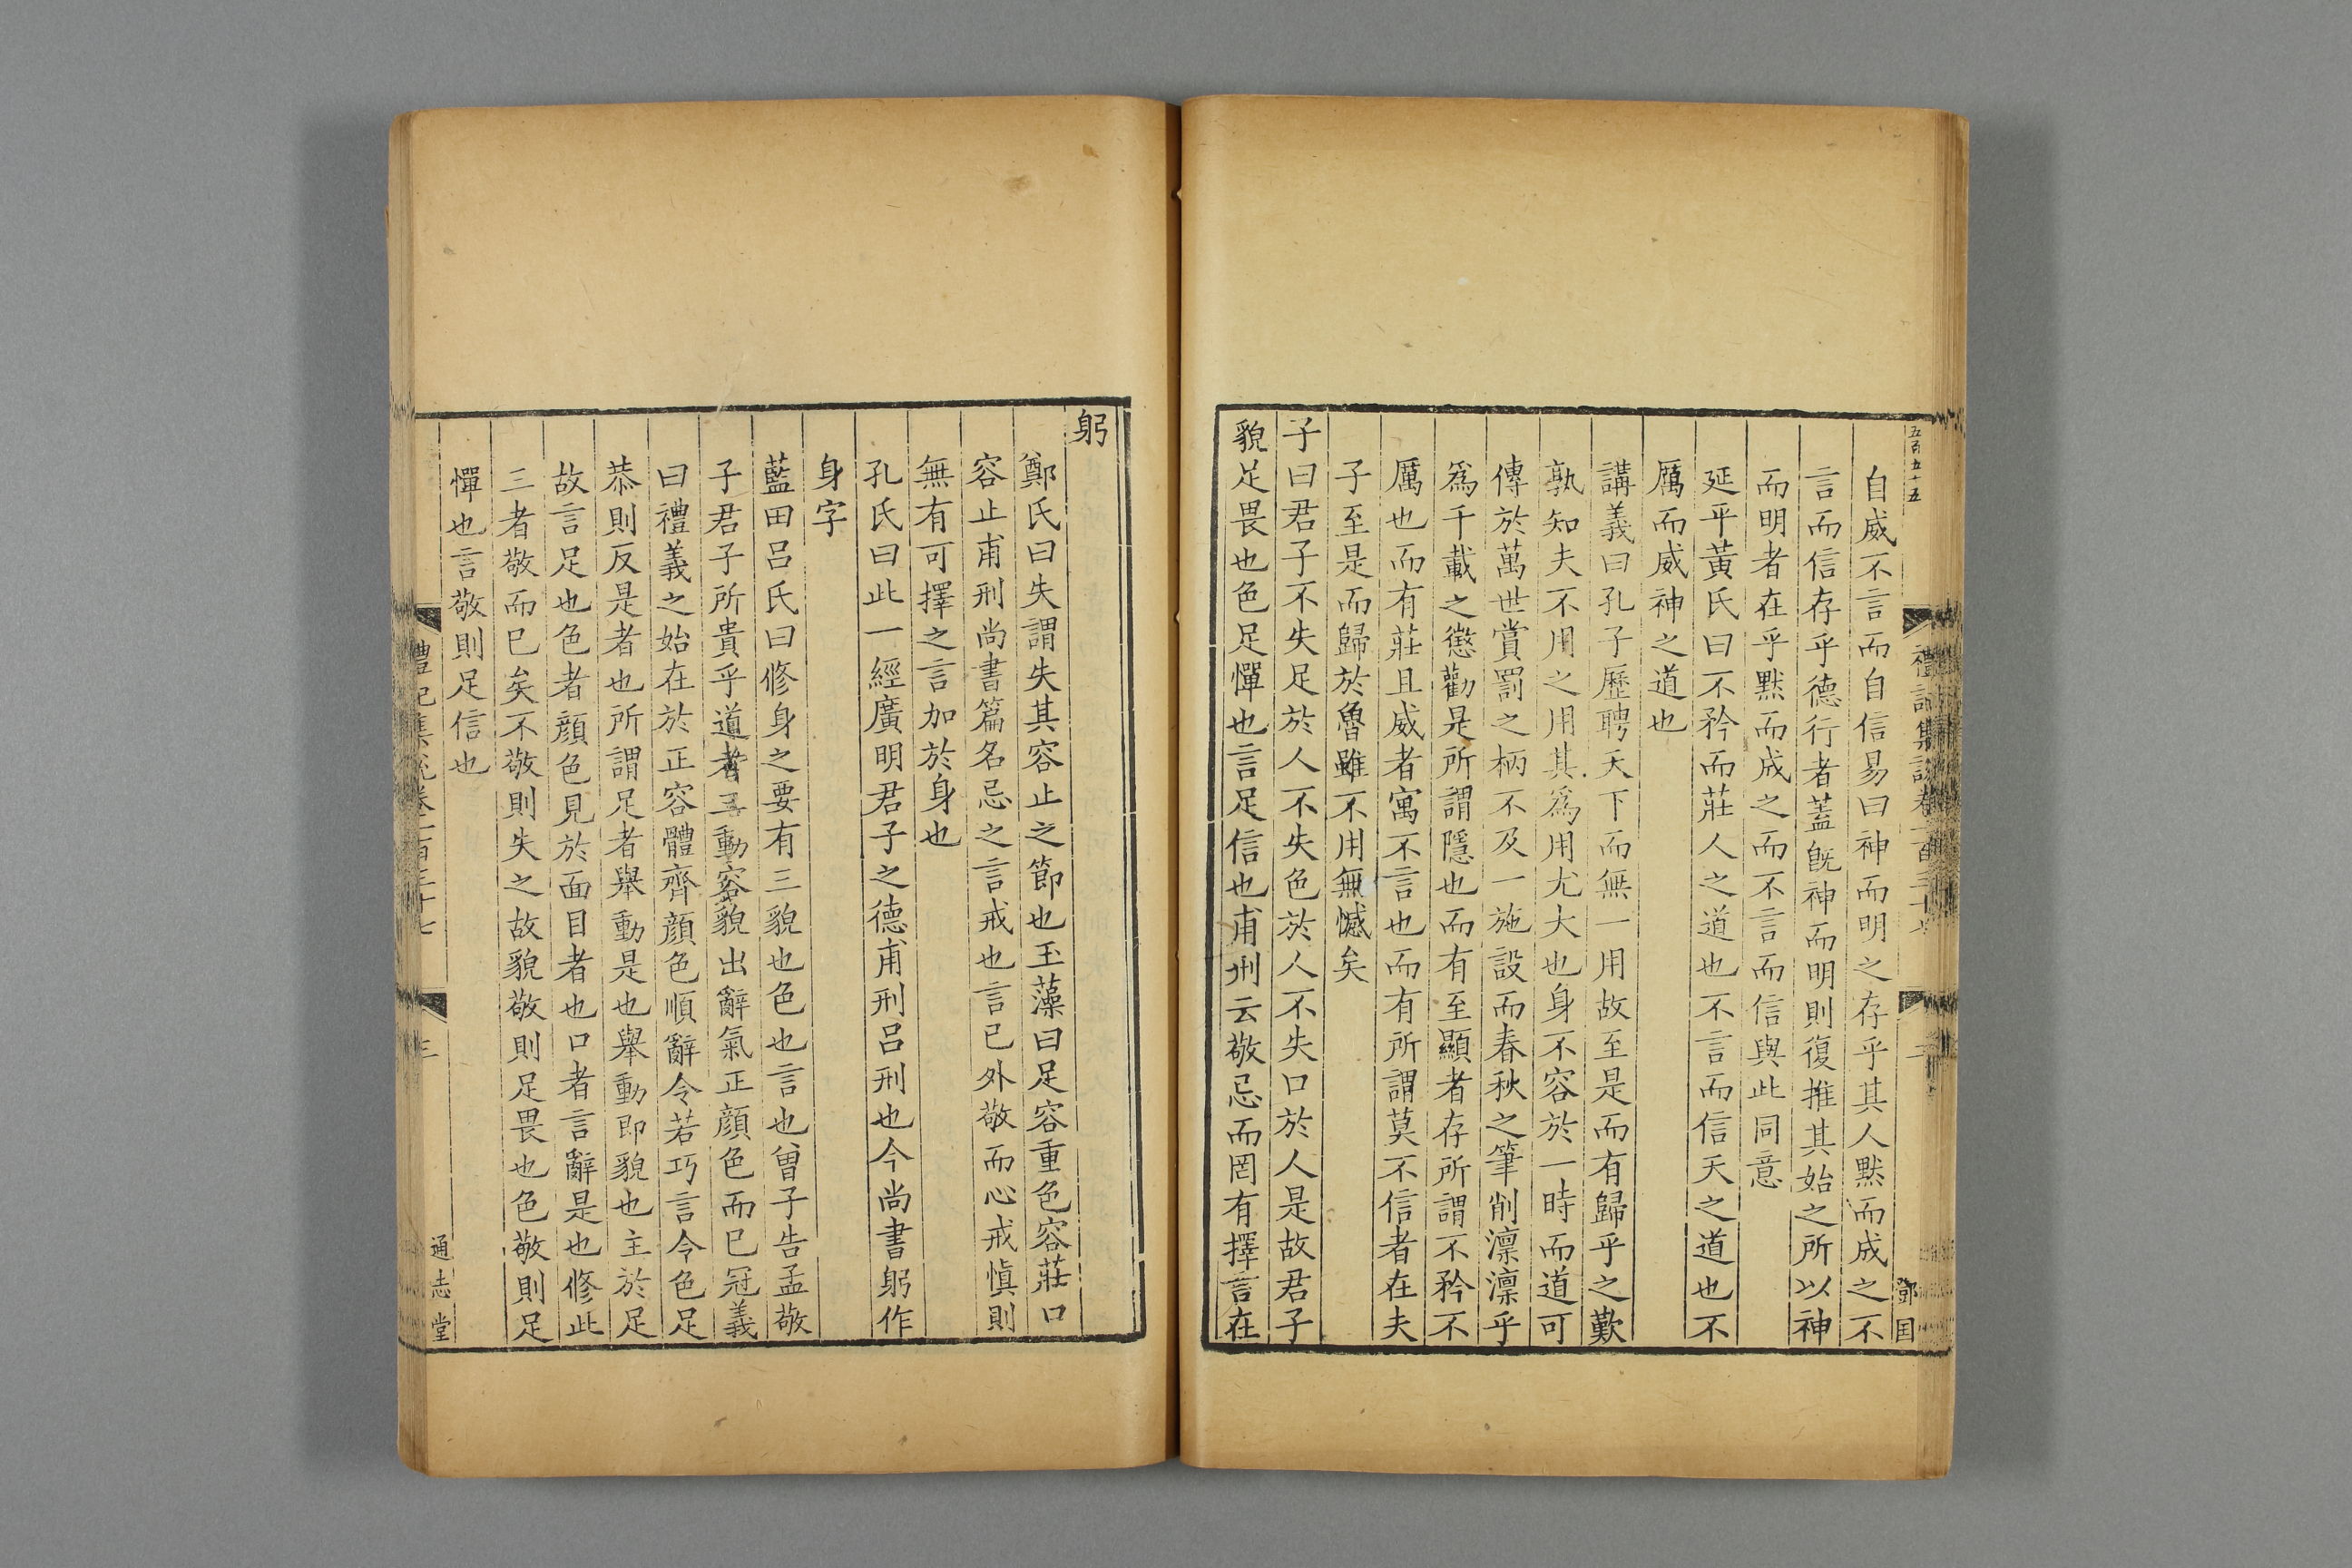 五百五十五
自威不言而自信易曰神而明之存乎其人黙而成之不
言而信存乎德行者蓋旣神而明則復推其始之所以神
而明者在乎黙而成之而不言而信與此同意
延平黃氏曰不矜而莊人之道也不言而信天之道也不
厲而威神之道也
講義曰孔子歷聘天下而無一用故至是而有歸乎之歎
孰知夫不用之用其爲用尤大也身不容於一時而道可
傳於萬世賞罰之柄不及一施設而春秋之筆削凜凜乎
爲千載之懲勸是所謂隱也而有至顯者存所謂不矜不
厲也而有莊且威者寓不言也而有所謂莫不信者在夫
子至是而歸於魯雖不用無憾矣
子曰君子不失足於人不失色於人不失口於人是故君子
貌足畏也色足憚也言足信也甫刑云敬忌而罔有擇言在
躬
鄭氏曰失謂失其容止之節也玉藻曰足容重色容莊口
容止甫刑尚書篇名忌之言戒也言已外敬而心戒愼則
無有可擇之言加於身也
孔氏曰此一經廣明君子之德甫刑呂刑也今尚書躬作
身字
藍田呂氏曰修身之要有三貌也色也言也曾子告孟敬
子君子所貴乎道者三動容貌出辭氣正顏色而已冠義
曰禮義之始在於正容體齊顏色順辭令若巧言令色足
恭則反是者也所謂足者舉動是也舉動即貌也主於足
故言足也色者顏色見於面目者也口者言辭是也修此
三者敬而已矣不敬則失之故貌敬則足畏也色敬則足
憚也言敬則足信也
禮記集說卷一百三十七
三
通志堂